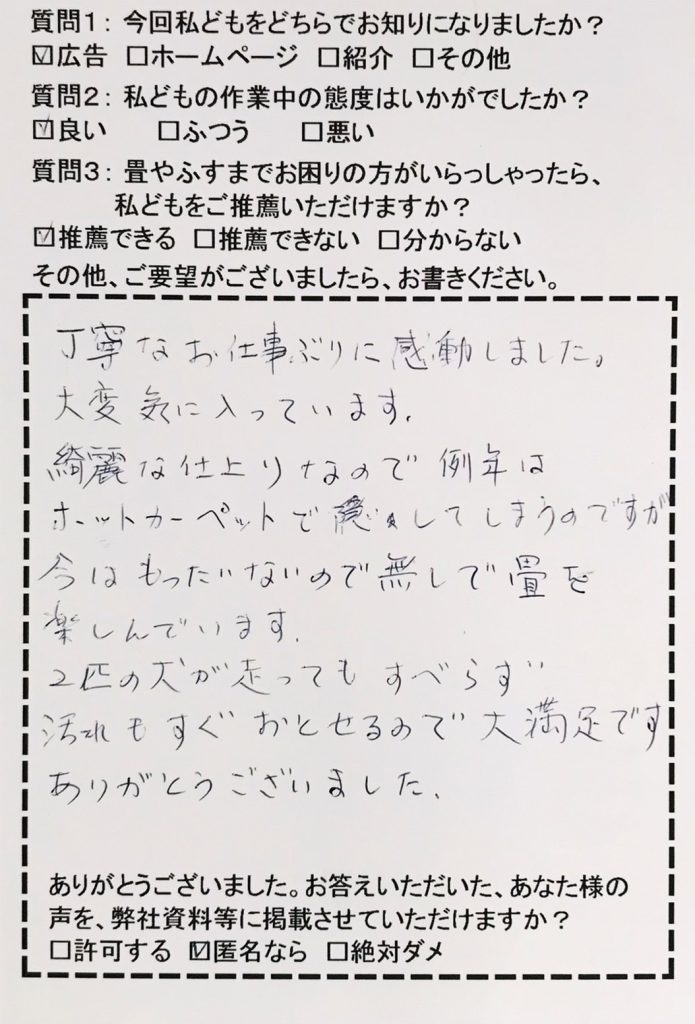 質問1：今回私どもをどちらでお知りになりましたか？
☑広告 □ホームページ □紹介 □その他
質問2：私どもの作業中の態度はいかがでしたか？
☑良い □ふつう □悪い
質問3：畳やふすまでお困りの方がいらっしゃったら、
私どもをご推薦いただけますか？
☑推薦できる □推薦できない □分からない
その他、ご要望がございましたら、お書きください。
丁寧なお仕事ぶりに感動しました。
大変気に入っています。
綺麗な仕上りなので例年は
ホットカーペットで隠してしまうのですが
今はもったいないので無しで畳を
楽しんでいます。
2匹の犬が走ってもすべらず
汚れもすぐおとせるので大満足です
ありがとうございました。
ありがとうございました。お答えいただいた、あなた様の
声を、弊社資料等に掲載させていただけますか？
□許可する ☑匿名なら □絶対ダメ